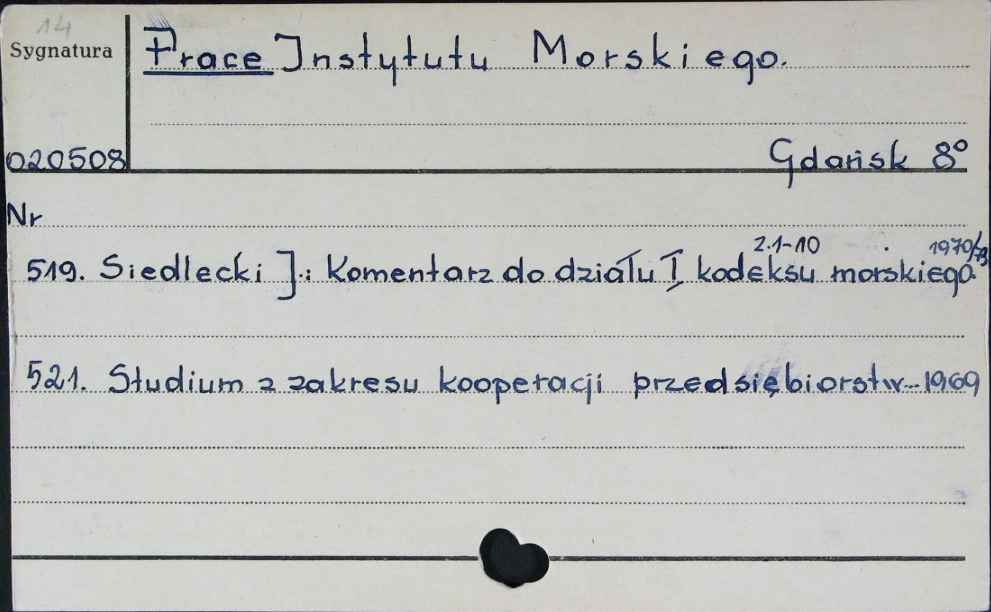 14
Sygnatura
Prace Instytutu Morskiego.
020508
Gdańsk 8°
Nr
z.1-10 1970/73
519. Siedlecki J.: Komentarz do działu I kodeksu morskiego.
521. Studium z zakresu kooperacji przedsiębiorstw-1969